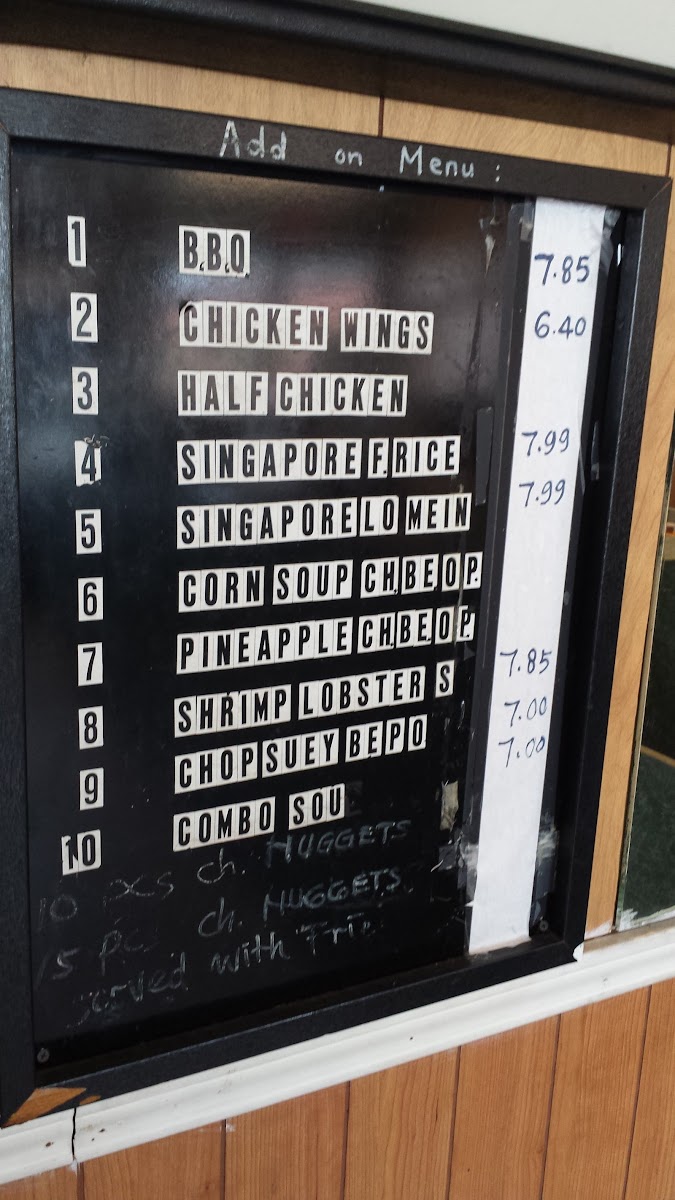 Add on Menu :
1 B.B.Q. 7.85
2 CHICKEN WINGS 6.40
3 HALF CHICKEN
4 SINGAPORE F.RICE 7.99
5 SINGAPORE LO MEIN 7.99
6 CORN SOUP CH,BE,O,P.
7 PINEAPPLE CH,BE,O,P.
8 SHRIMP LOBSTER S 7.85
9 CHOPSUEY BE,P,O 7.00
10 COMBO SOU 7.00
10 pcs ch. NUGGETS
15 pc ch. NUGGETS
served with Frie